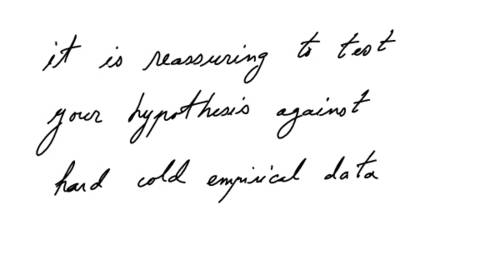 it is reassuring to test
your hypothesis against
hard cold empirical data